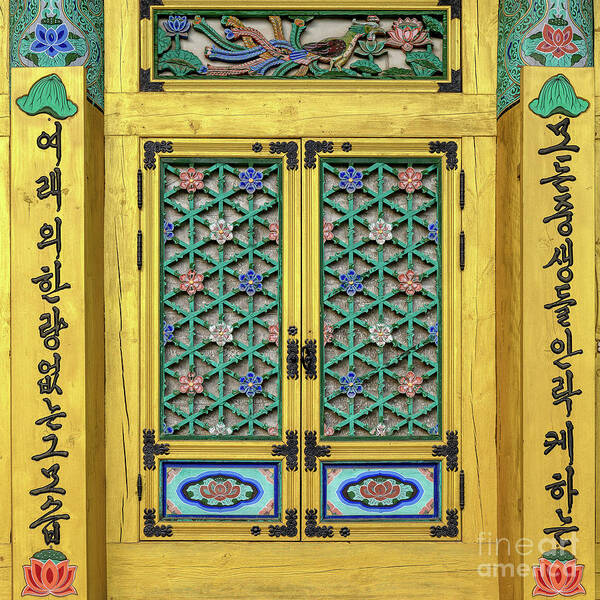 모든중생들안락케하는
여래의한량없는그모습
fine art
america